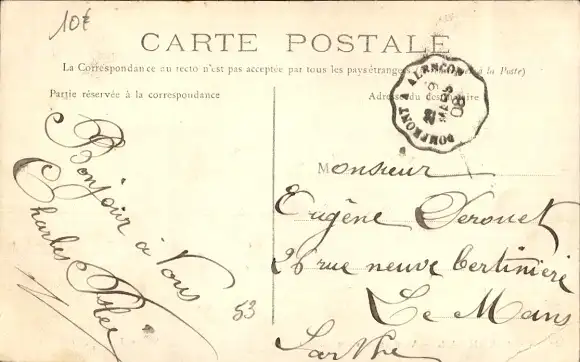 10€
CARTE POSTALE
La Correspondance au recto n'est pas acceptée par tous les pays étrangers à la Poste)
Partie réservée à la correspondance
Adresse du destinataire
DOMFRONT A ALENÇON
MARS
08
Bonjour à Vous
Charles
53
Monsieur
Eugène Derouet
26 rue neuve Bertinière
Le Mans
Sarthe